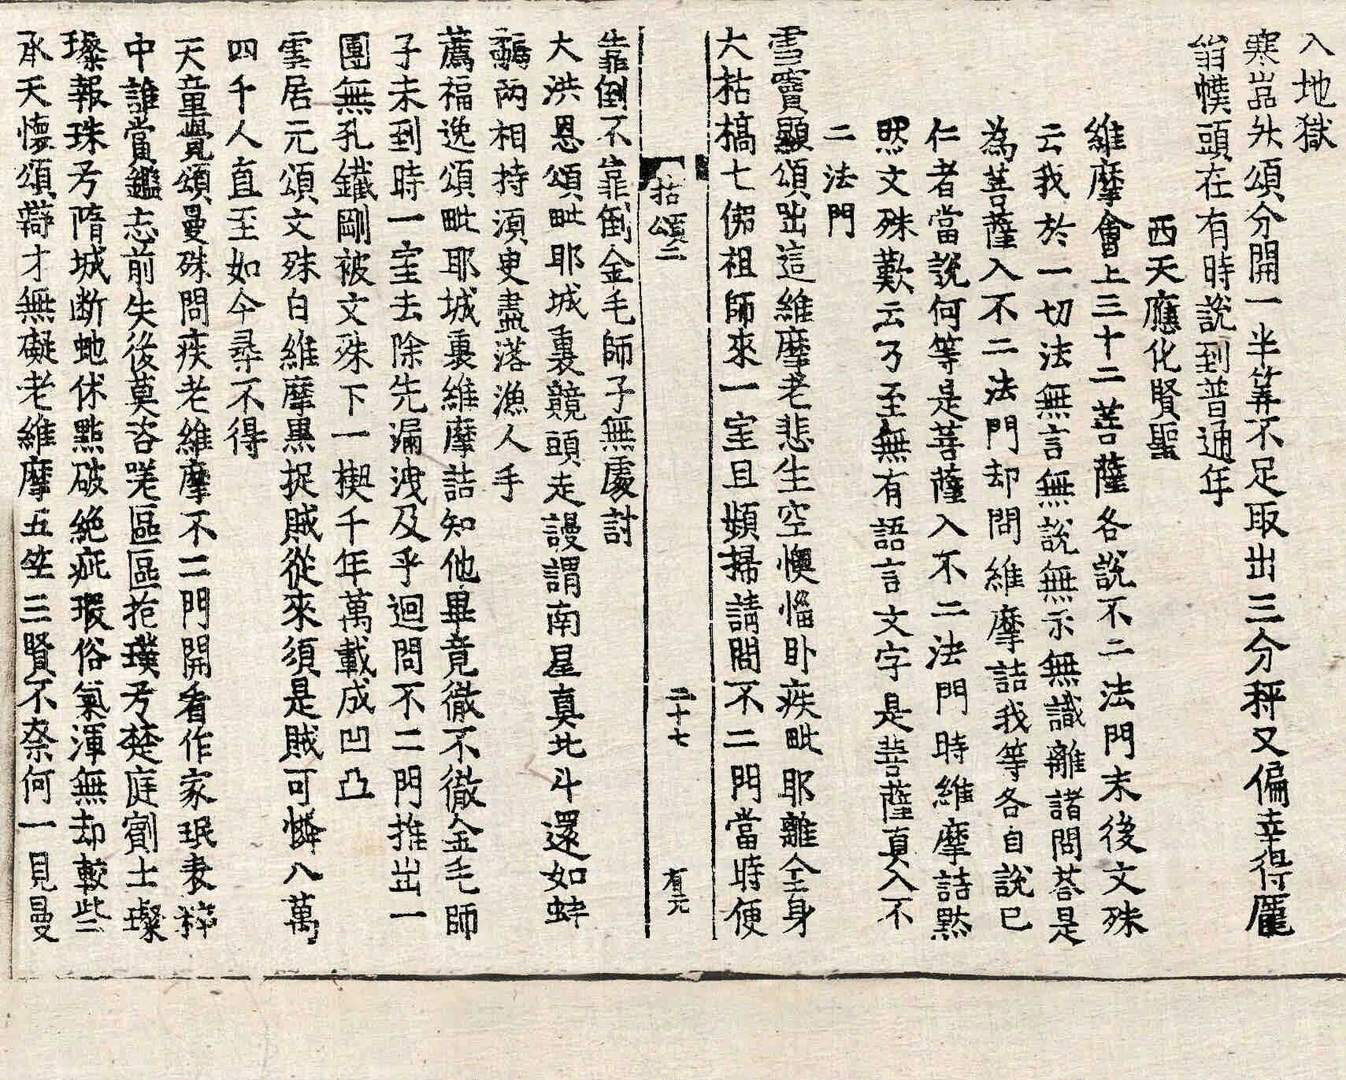 入地獄
寒嵓升頌分開一半筭不足取出三分秤又偏幸得龐
翁幞頭在有時說到普通年
西天應化賢聖
維摩會上三十二菩薩各說不二法門末後文殊
云我於一切法無言無說無示無識離諸問荅是
為菩薩入不二法門却問維摩詰我等各自說已
仁者當說何等是菩薩入不二法門時維摩詰默
然文殊歎云乃至無有語言文字是菩薩真入不
二法門
雪竇顯頌咄這維摩老悲生空懊惱卧疾毗耶離全身
大枯槁七佛祖師來一室且頻掃請問不二門當時便
拈頌二 二十七 有元
靠倒不靠倒金毛師子無處討
大洪恩頌毗耶城裏競頭走謾謂南星真北斗還如蚌
鷸兩相持須臾盡落漁人手
薦福逸頌毗耶城裏維摩詰知他畢竟徹不徹金毛師
子未到時一室去除先漏洩及乎迴問不二門推出一
團無孔鐵剛被文殊下一楔千年萬載成凹凸
雲居元頌文殊白維摩黑捉賊從來須是賊可憐八萬
四千人直至如今尋不得
天童覺頌曼殊問疾老維摩不二門開看作家珉表粹
中誰賞鑑忘前失後莫咨嗟區區抱璞兮楚庭臏士璨
璨報珠兮隋城断虵休點破絕疵瑕俗氣渾無却較些
承天懷頌辯才無礙老維摩五竺三賢不柰何一見曼